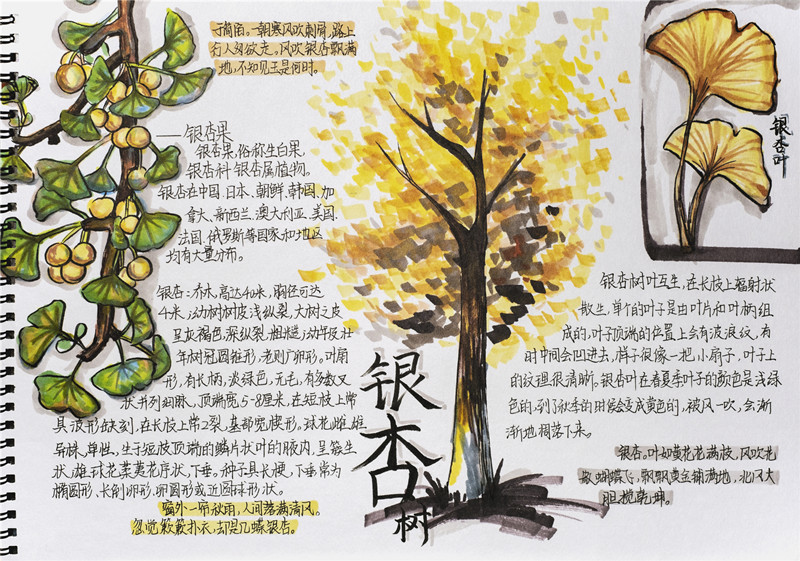 一朝寒风吹刺屑,路上
行人匆欲走。风吹银杏飘满
地,不知见玉是何时。
——银杏果
银杏果,俗称生白果,
银杏科银杏属植物。
银杏在中国、日本、朝鲜、韩国、加
拿大、新西兰、澳大利亚、美国、
法国、俄罗斯等国家和地区
均有大量分布。
银杏:乔木,高达40米,胸径可达
4米;幼树树皮浅纵裂,大树之皮
呈灰褐色,深纵裂,粗糙;幼年及壮
年树冠圆锥形,老则广卵形。叶扇
形,有长柄,淡绿色,无毛,有多数叉
状并列细脉,顶端宽5-8厘米,在短枝上常
具波形缺刻,在长枝上常2裂,基部宽楔形,球花雌雄
异株,单性,生于短枝顶端的鳞片状叶的腋内,呈簇生
状,雄球花葇荑花序状,下垂。种子具长梗,下垂,常为
椭圆形、长倒卵形、卵圆形或近圆球形状。
窗外一帘秋雨,人间落满清风。
忽觉簌簌扑衣,却是几蝶银杏。
银杏树
银杏叶
银杏树叶互生,在长枝上辐射状
散生,单个的叶子是由叶片和叶柄组
成的,叶子顶端的位置上会有波浪纹,有
时中间会凹进去,样子很像一把小扇子,叶子上
的纹理很清晰。银杏叶在春夏季叶子的颜色是浅绿
色的,到了秋季的时候会变成黄色的,被风一吹,会渐
渐地凋落下来。
银杏。叶如黄花花满枝,风吹花
散蝴蝶飞,飘飘黄金铺满地,北风大
胆揽乾坤。